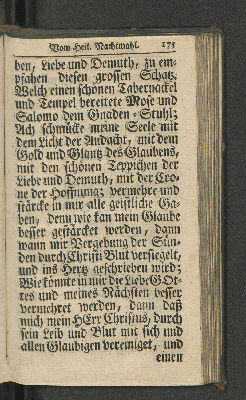 Vom Heil. Nachtmahl. 175
ben, Liebe und Demuth, zu em-
pfahen diesen grossen Schatz.
Welch einen schönen Tabernackel
und Tempel bereitete Mose und
Salomo dem Gnaden-Stuhl;
Ach schmücke meine Seele mit
dem Licht der Andacht, mit dem
Gold und Glantz des Glaubens,
mit den schönen Teppichen der
Liebe und Demuth, mit der Cro-
ne der Hoffnung; vermehre und
stärcke in mir alle geistliche Ga-
ben, denn wie kan mein Glaube
besser gestärcket werden, dann
wann mir Vergebung der Sün-
den durch Christi Blut versiegelt,
und ins Hertz geschrieben wird;
Wie könnte in mir die Liebe GOt-
tes und meines Nächsten besser
vermehret werden, dann daß
mich mein HErr Christus, durch
sein Leib und Blut mit sich und
allen Glaubigen vereiniget, und
einen